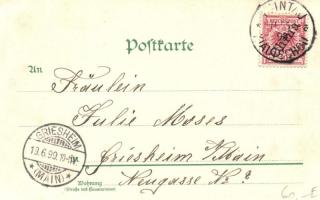 Postkarte
An
Fräulein
Julie Moses
Griesheim a/Main
Neugasse No 2
Wohnung
(Straße und Hausnummer)
GRIESHEIM
(MAIN)